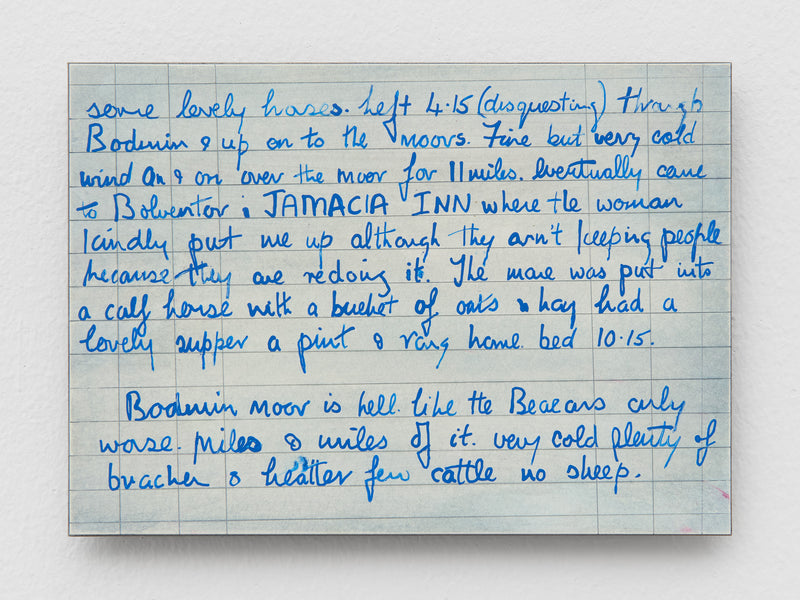 some lovely horses. Left 4.15 (disgusting) through
Bodmin & up on to the moors. Fine but very cold
wind on & on over the moor for 11 miles. Eventually came
to Bolventor; JAMACIA INN where the woman
kindly put me up although they arn't keeping people
because they are redoing it. The mare was put into
a calf house with a bucket of oats & hay had a
lovely supper a pint & rang home. bed 10.15.
Bodmin moor is hell. like the Beacons only
worse. Miles & miles of it. very cold plenty of
bracken & heather few cattle no sheep.